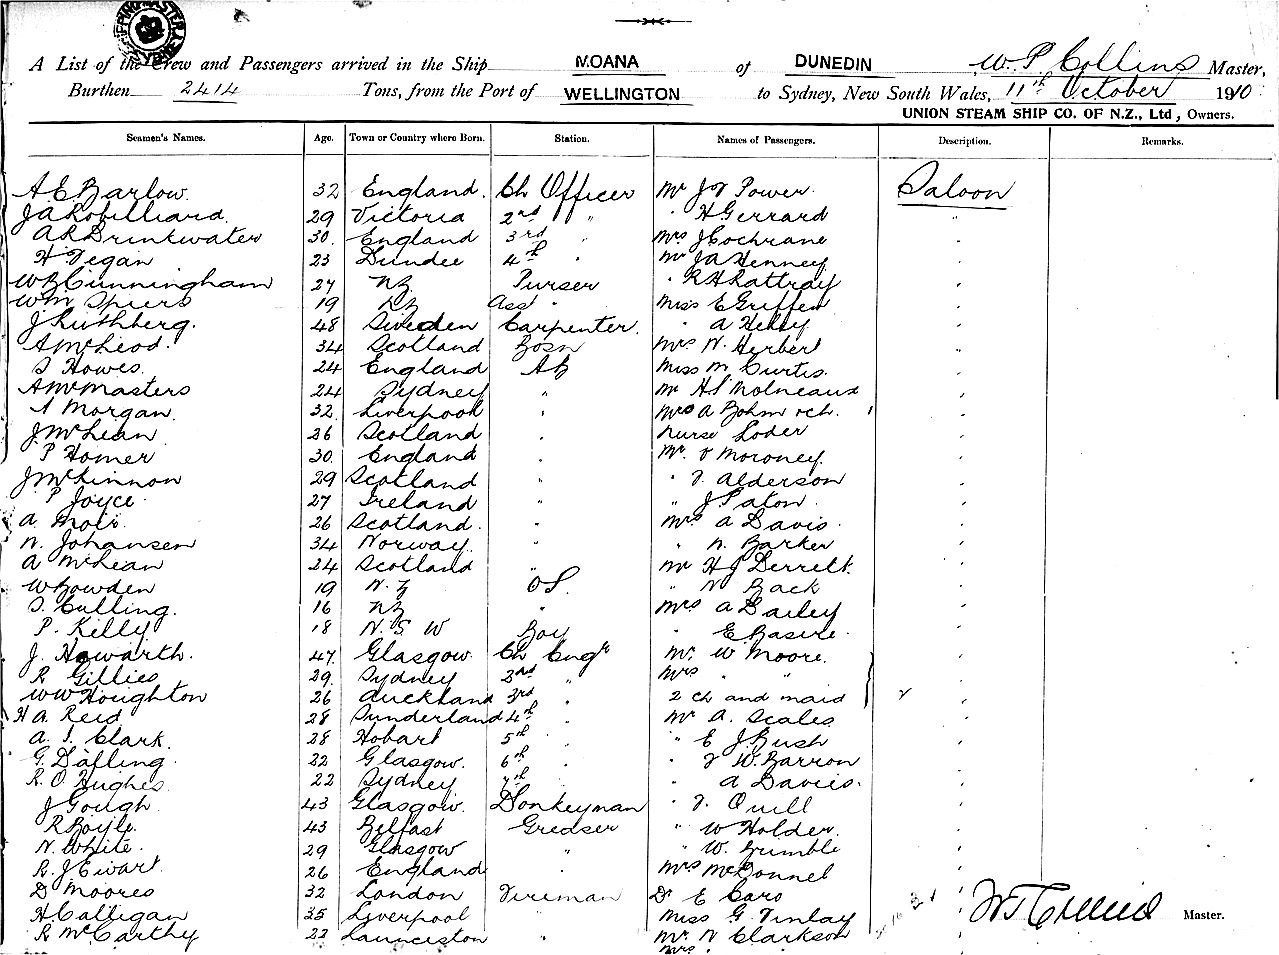 SHIPPING MASTER SYDNEY
A List of the Crew and Passengers arrived in the Ship MOANA of DUNEDIN W. P. Collins Master,
Burthen 2414 Tons, from the Port of WELLINGTON to Sydney, New South Wales, 11th October 1910
UNION STEAM SHIP CO. OF N.Z., Ltd, Owners.
Seamen's Names. Age. Town or Country where Born. Station. Names of Passengers. Description. Remarks.
A E Barlow 32 England. Ch Officer Mr J Power. Saloon
J A Robilliard. 29 Victoria 2nd " " H Gerrard "
A R Drinkwater 30. England 3rd " Mrs J Cochrane "
H Fegan 23 Dundee 4th " Mr J A Henney "
W B Cunningham 27 NZ Purser " R H Rattray "
Wm Spiers 19 NZ Asst " Miss E Griffen "
J Ruthberg. 48 Sweden Carpenter. " A "
A McLeod. 34 Scotland Bosn Mrs N. Herbert "
S Howes. 24 England AB Miss M Curtis. "
A McMasters 24 Sydney " Mr H S Molneaux "
A Morgan. 32. Liverpool " Mrs A Bohm och. 1 "
J McLean 26 Scotland " Nurse Loder "
P Homer 30. England " Mr. Moroney. "
J McKinnon 29 Scotland " " Alderson "
P Joyce. 27 Ireland " " J Paton. "
A 26 Scotland. " Mrs A Davis. "
N. Johansen 34 Norway. " " N. Barker "
A McLean 24 Scotland " Mr H J Derrett. "
W Bowden 19 N. Z OS. " N Back "
S. Culling. 16 NZ " Mrs A Bailey "
P. Kelly 18 N. S. W Boy " E Basire. "
J. Howarth. 47. Glasgow. Ch Engr Mr. W Moore. "
R Gillies 29. Sydney 2nd " Mrs " " "
W W Houghton 26 Auckland 3rd " 2 ch and maid
H A. Reid 28 Sunderland 4th " Mr A. Scales "
A. J. Clark. 28 Hobart 5th " " E J Bush "
G. Dafling. 22 Glasgow. 6th " " W. Barron "
R. O Hughes. 22 Sydney 7th " " A Davies. "
J Gough. 43 Glasgow. Donkeyman " Quill "
R Boyle. 43 Belfast Greaser " W Holder. "
N. White. 29 Glasgow " " W. "
R. J Ewart. 26 England " Mrs McDonnel "
D Moores 32 London Fireman Dr E Caro "
H Calligan 35 Liverpool " Miss G. Finlay " Master.
R McCarthy 22 Launceston " Mr. N Clarkson "
Mrs